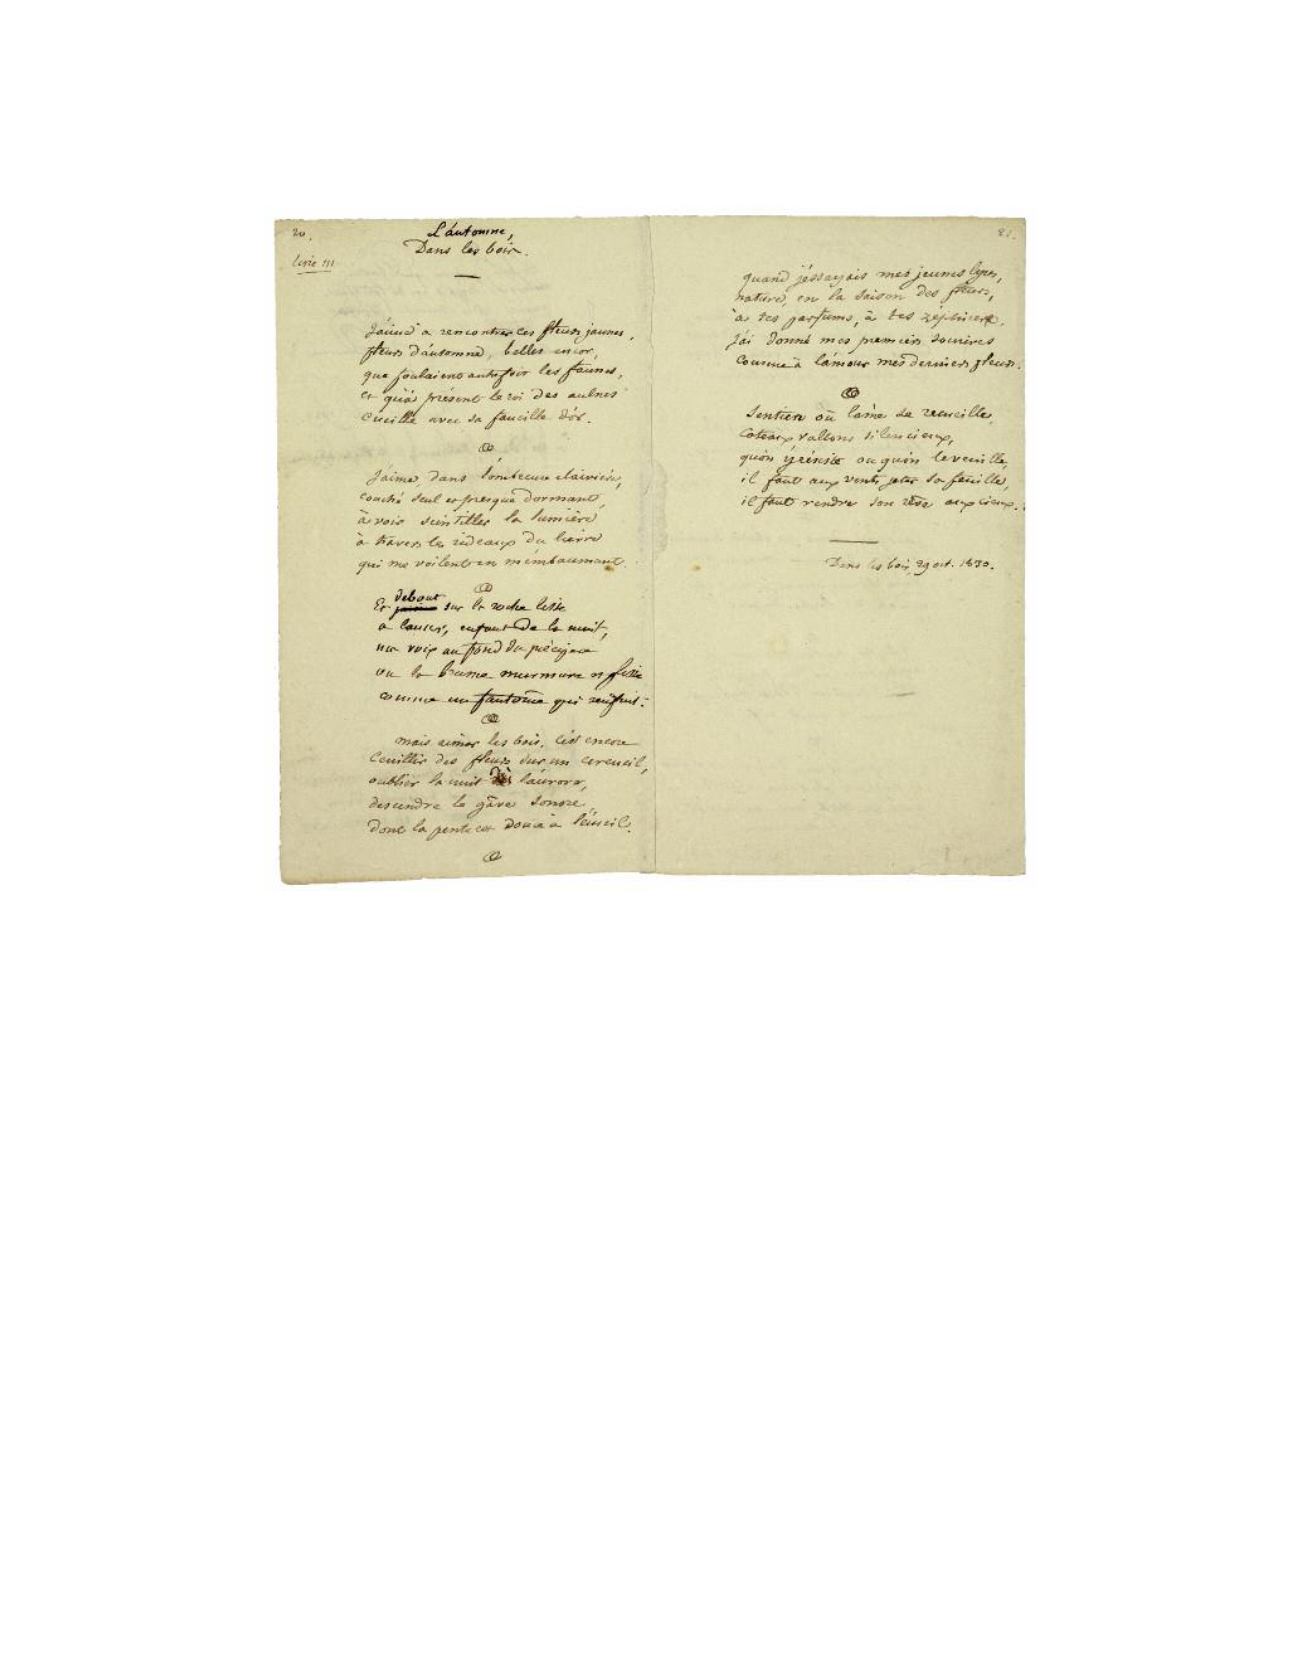 20.
Livre III
L'automne,
Dans les bois.
J'aime à rencontrer ces fleurs jaunes,
fleurs d'automne, belles encor,
que foulaient autrefois les faunes,
et qu'à présent le roi des aulnes
cueille avec sa faucille d'or.
J'aime, dans l'ombreuse clairière,
couché seul et presque dormant,
à voir scintiller la lumière
à travers les rideaux du lierre
qui me voilent en m'embaumant.
debout
Et sur la roche lisse
à lancer, enfant de la nuit,
ma voix au fond du précipice
où la brume murmure et glisse
comme un fantôme qui s'enfuit.
mais aimer les bois, c'est encore
cueillir des fleurs sur un cercueil,
oublier la nuit l'aurore,
descendre le gâve sonore,
dont la pente est douce à l'écueil.
21.
quand j'éssayais mes jeunes lyres,
nature, en la saison des fleurs,
à tes parfums, à tes zéphires,
j'ai donné mes premiers sourires
comme à l'amour mes derniers pleurs.
Sentiers où l'âme se recueille,
coteaux vallons silencieux,
qu'on y rêve ou qu'on le veuille,
il faut aux vents jeter sa feuille,
il faut rendre son rêve aux cieux.
Dans les bois, 29 oct. 1830.